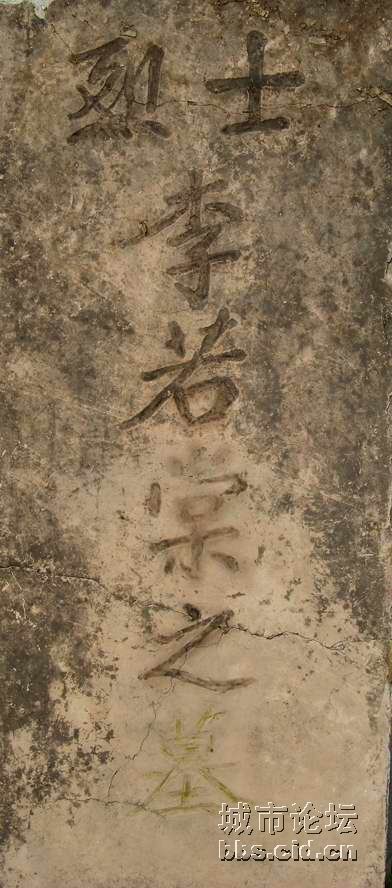 烈士
李若崇之墓
城市论坛
bbs.cid.cn